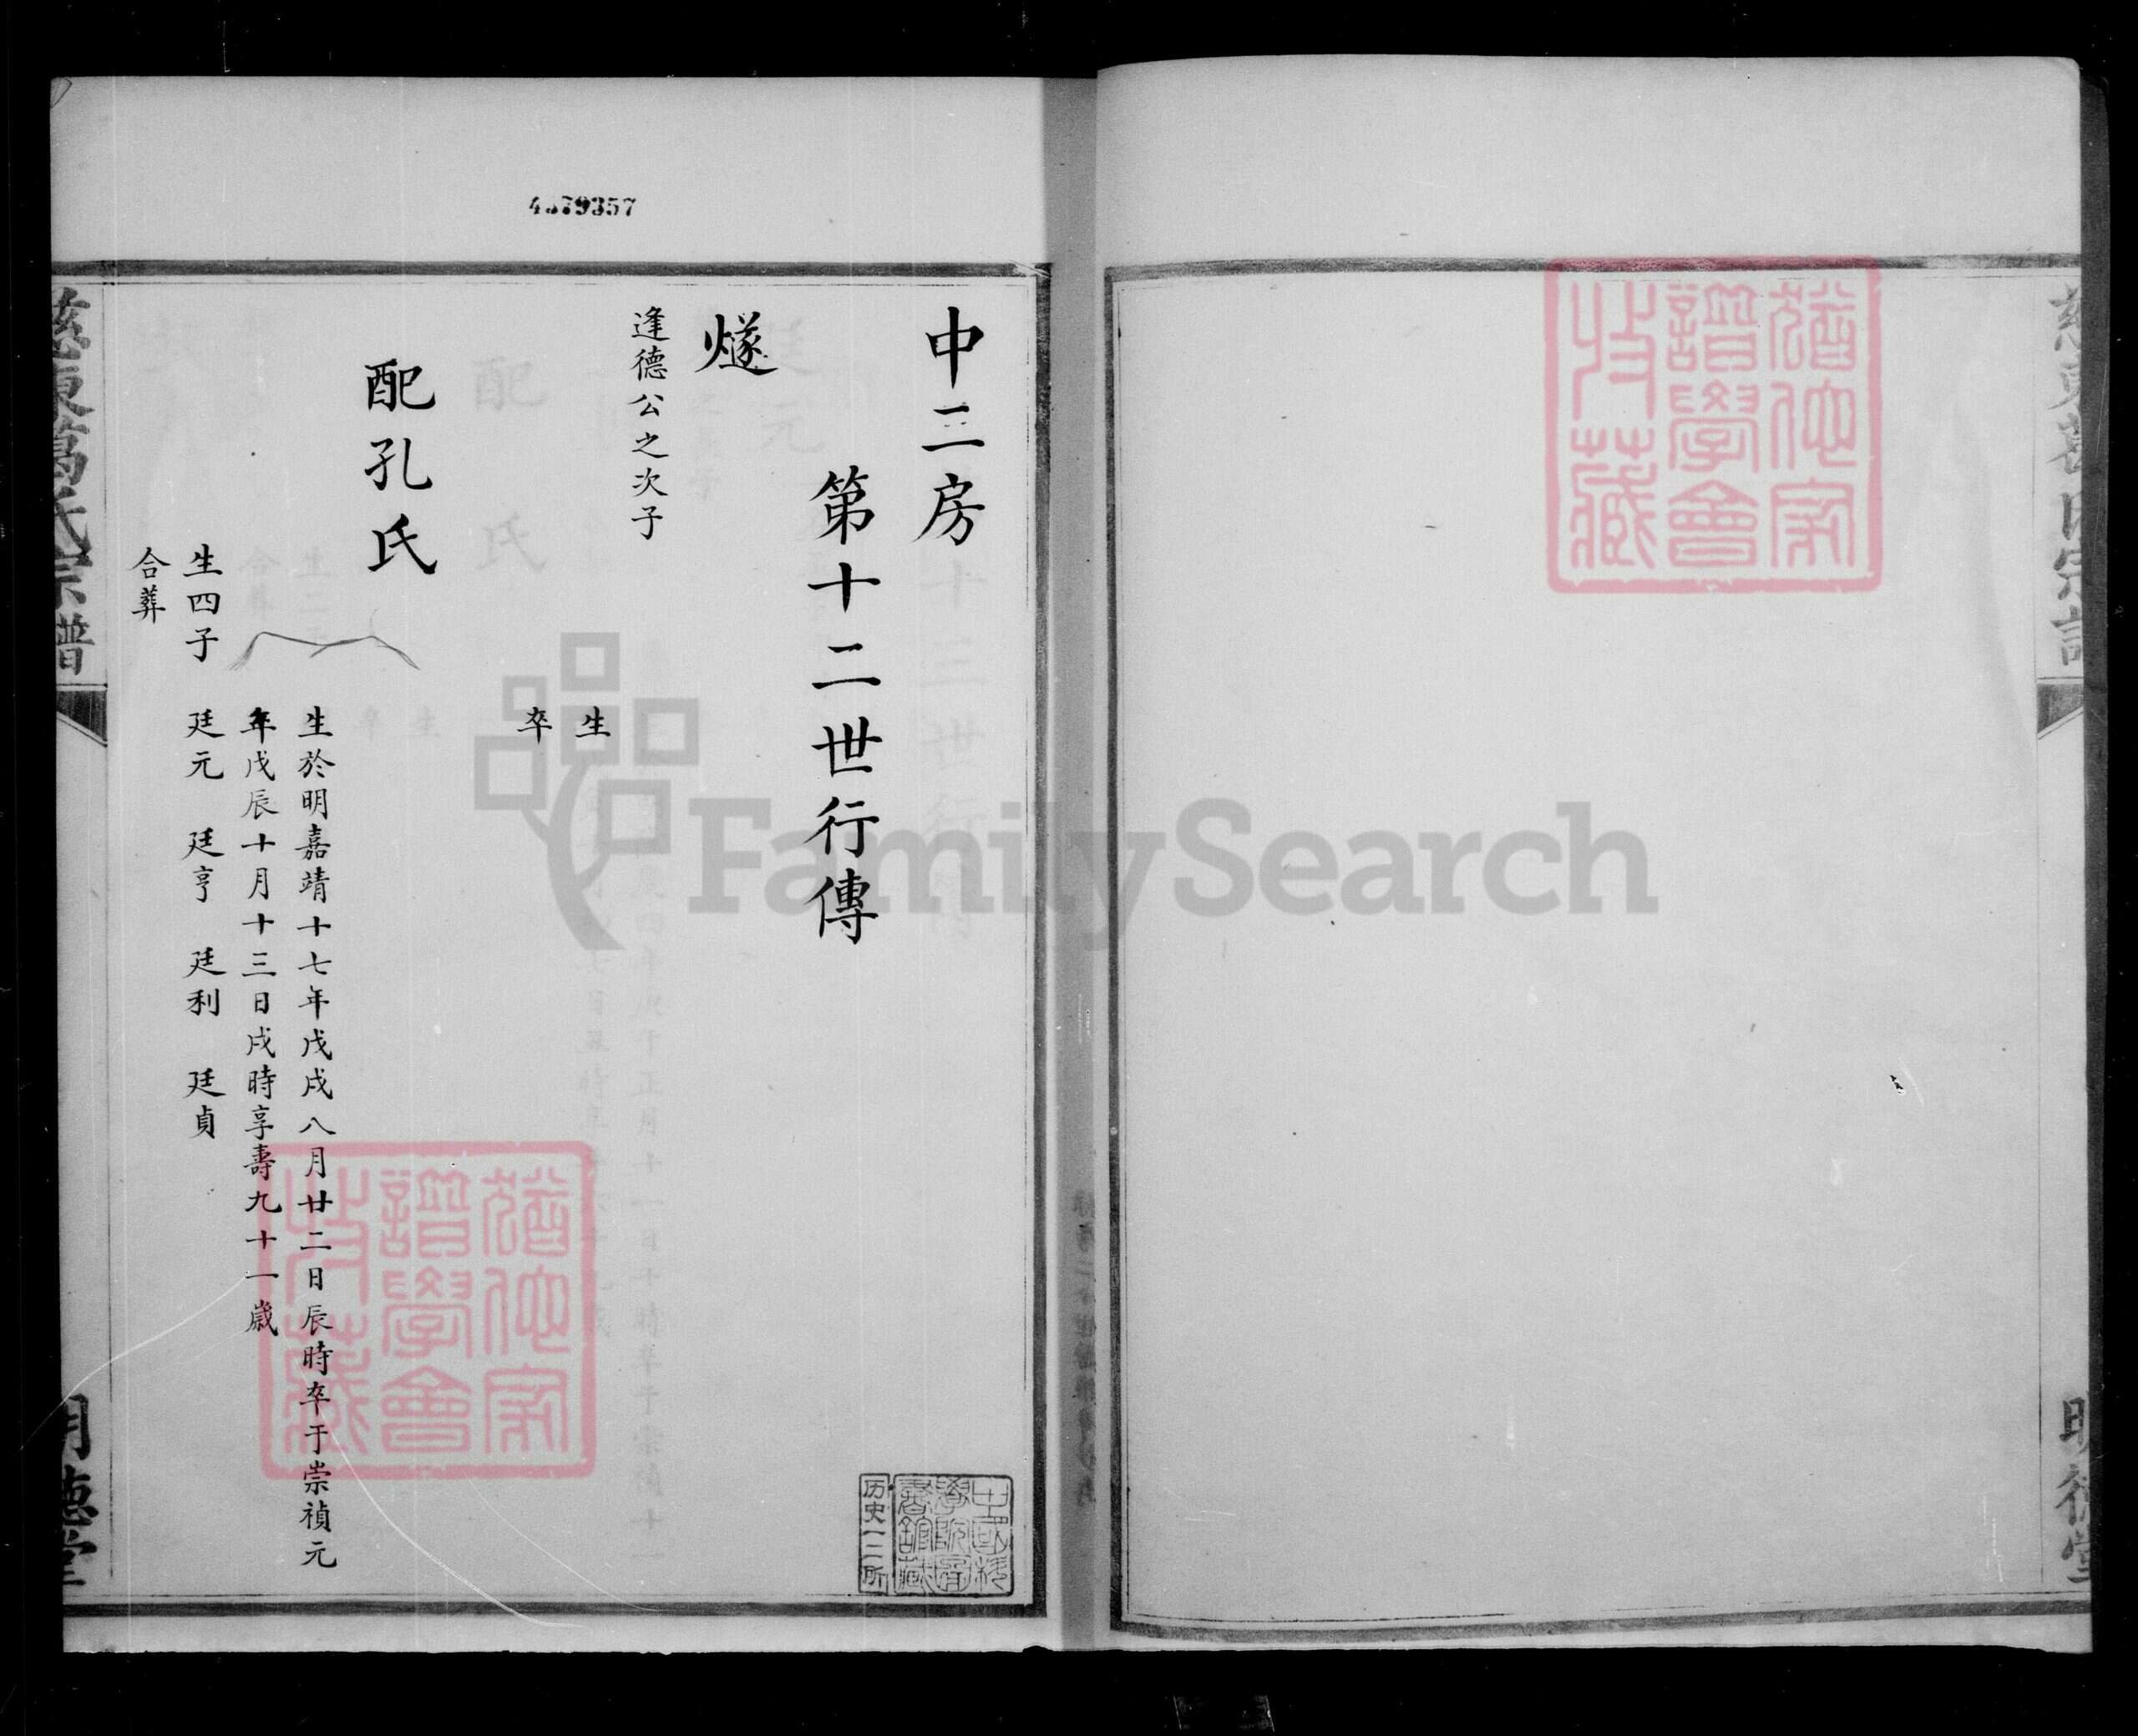 4379357
中二房
第十二世行傳
燧
逢德公之次子
生
卒
配孔氏
生於明嘉靖十七年戊戌八月廿二日辰時卒于崇禎元
年戊辰十月十三日戌時享壽九十一歲
生四子 廷元 廷亨 廷利 廷貞
合葬
慈東葛氏宗譜
明德堂
猶他家譜學會收藏
猶他家譜學會收藏
中國科學院圖書館藏
历史一二所
FamilySearch
明德堂